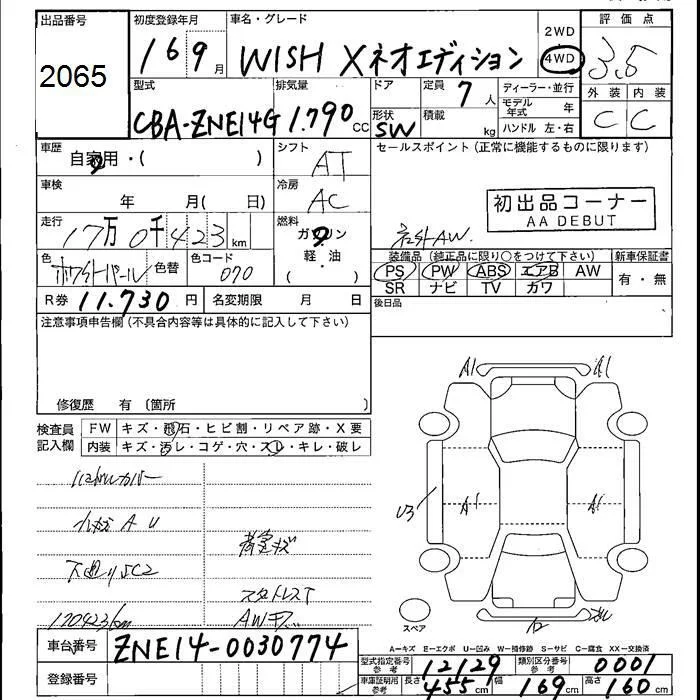 出品番号 初度登録年月 車名・グレード 評価点
2065
16 9月 WISH Xネオエディション 2WD 4WD 3.5
型式 排気量 ドア 定員 7人 ディーラー・並行 外装 内装
モデル年式 年
CBA-ZNE14G 1.790 cc 形状 SW 積載 kg ハンドル 左・右 C C
車歴 自家用・( ) シフト AT セールスポイント(正常に機能するものに限ります)
車検 年 月( 日) 冷房 AC
初出品コーナー
AA DEBUT
走行 17万0千423km 燃料 ガソリン 軽油・( )
社外AW.
色 ホワイトパール 色替 色コード 070
装備品(純正品に限り○をつけて下さい) 新車保証書
PS PW ABS エアB AW 有・無
SR ナビ TV カワ
R券 11.730円 名変期限 月 日 後日品
注意事項申告欄(不具合内容等は具体的に記入して下さい)
修復歴 有 (箇所 )
検査員記入欄 FW キズ・飛石・ヒビ割・リペア跡・X要
内装 キズ・汚レ・コゲ・穴・スレ・キレ・破レ
A1 A1
U3 A1 A1
小キズ A U
下廻りSC2
スタットレスT
170423km
スペア
A2
車台番号 ZNE14-0030774
登録番号
A-キズ E-エクボ U-凹み W-補修跡 S-サビ C-腐食 XX-交換済
型式指定番号 参考 12129 類別区分番号 参考 0001
車庫証明用 参考 長さ 455cm 幅 169cm 高さ 160cm